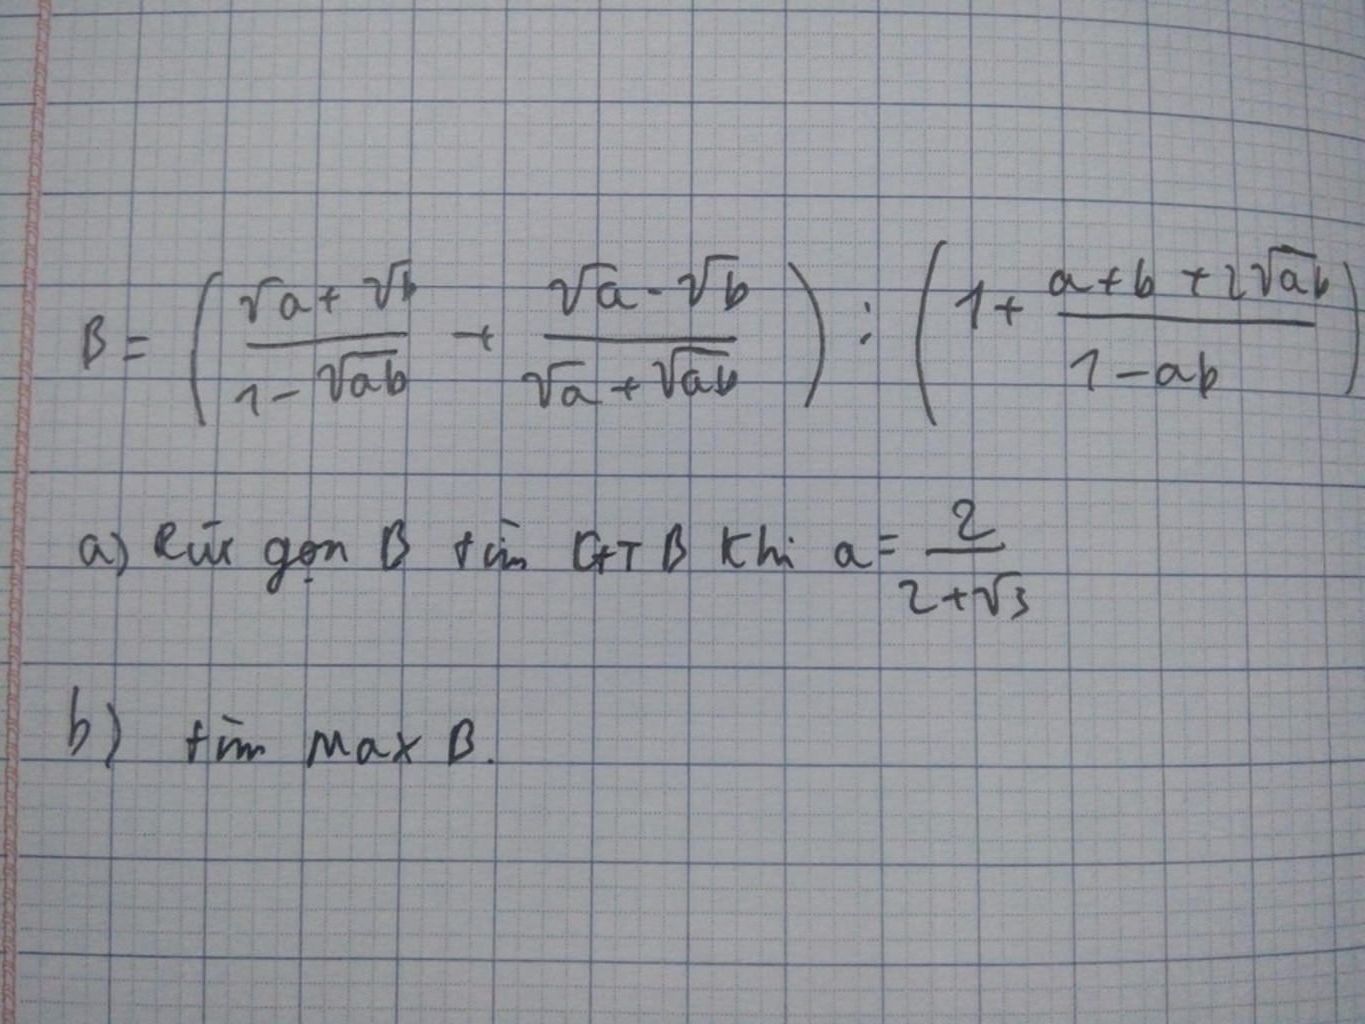 B = ( (√a + √b)/(1 - √ab) + (√a - √b)/(√a + √ab) ) : ( 1 + (a + b + 2√ab)/(1 - ab) )
a) Rút gọn B tìm GT B khi a = 2/(2 + √3)
b) tìm Max B.